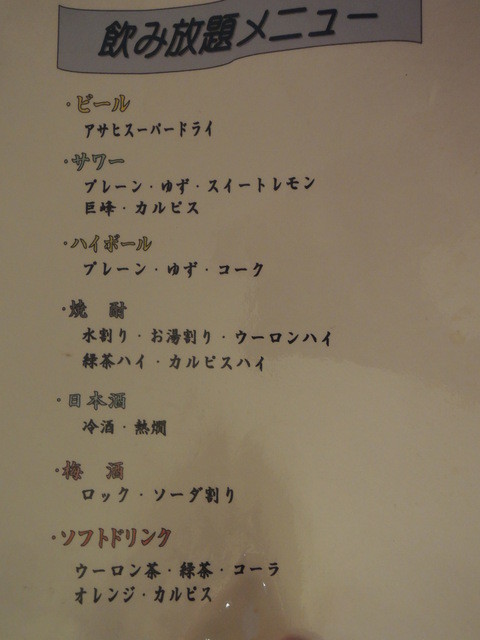 飲み放題メニュー
・ビール
アサヒスーパードライ
・サワー
プレーン・ゆず・スイートレモン
巨峰・カルピス
・ハイボール
プレーン・ゆず・コーク
・焼 酎
水割り・お湯割り・ウーロンハイ
緑茶ハイ・カルピスハイ
・日本酒
冷酒・熱燗
・梅 酒
ロック・ソーダ割り
・ソフトドリンク
ウーロン茶・緑茶・コーラ
オレンジ・カルピス